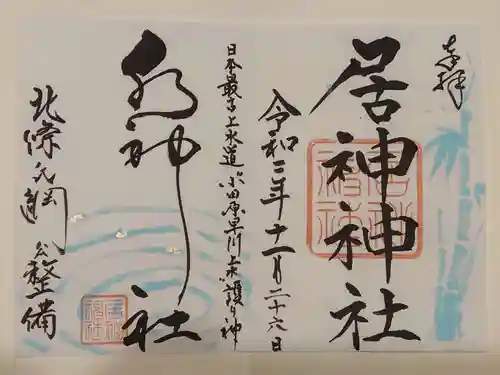 奉拝
居神神社
令和三年十一月二十六日
日本最古上水道 小田原早川上水護り神
水神社
北條氏綱公整備
居神神社